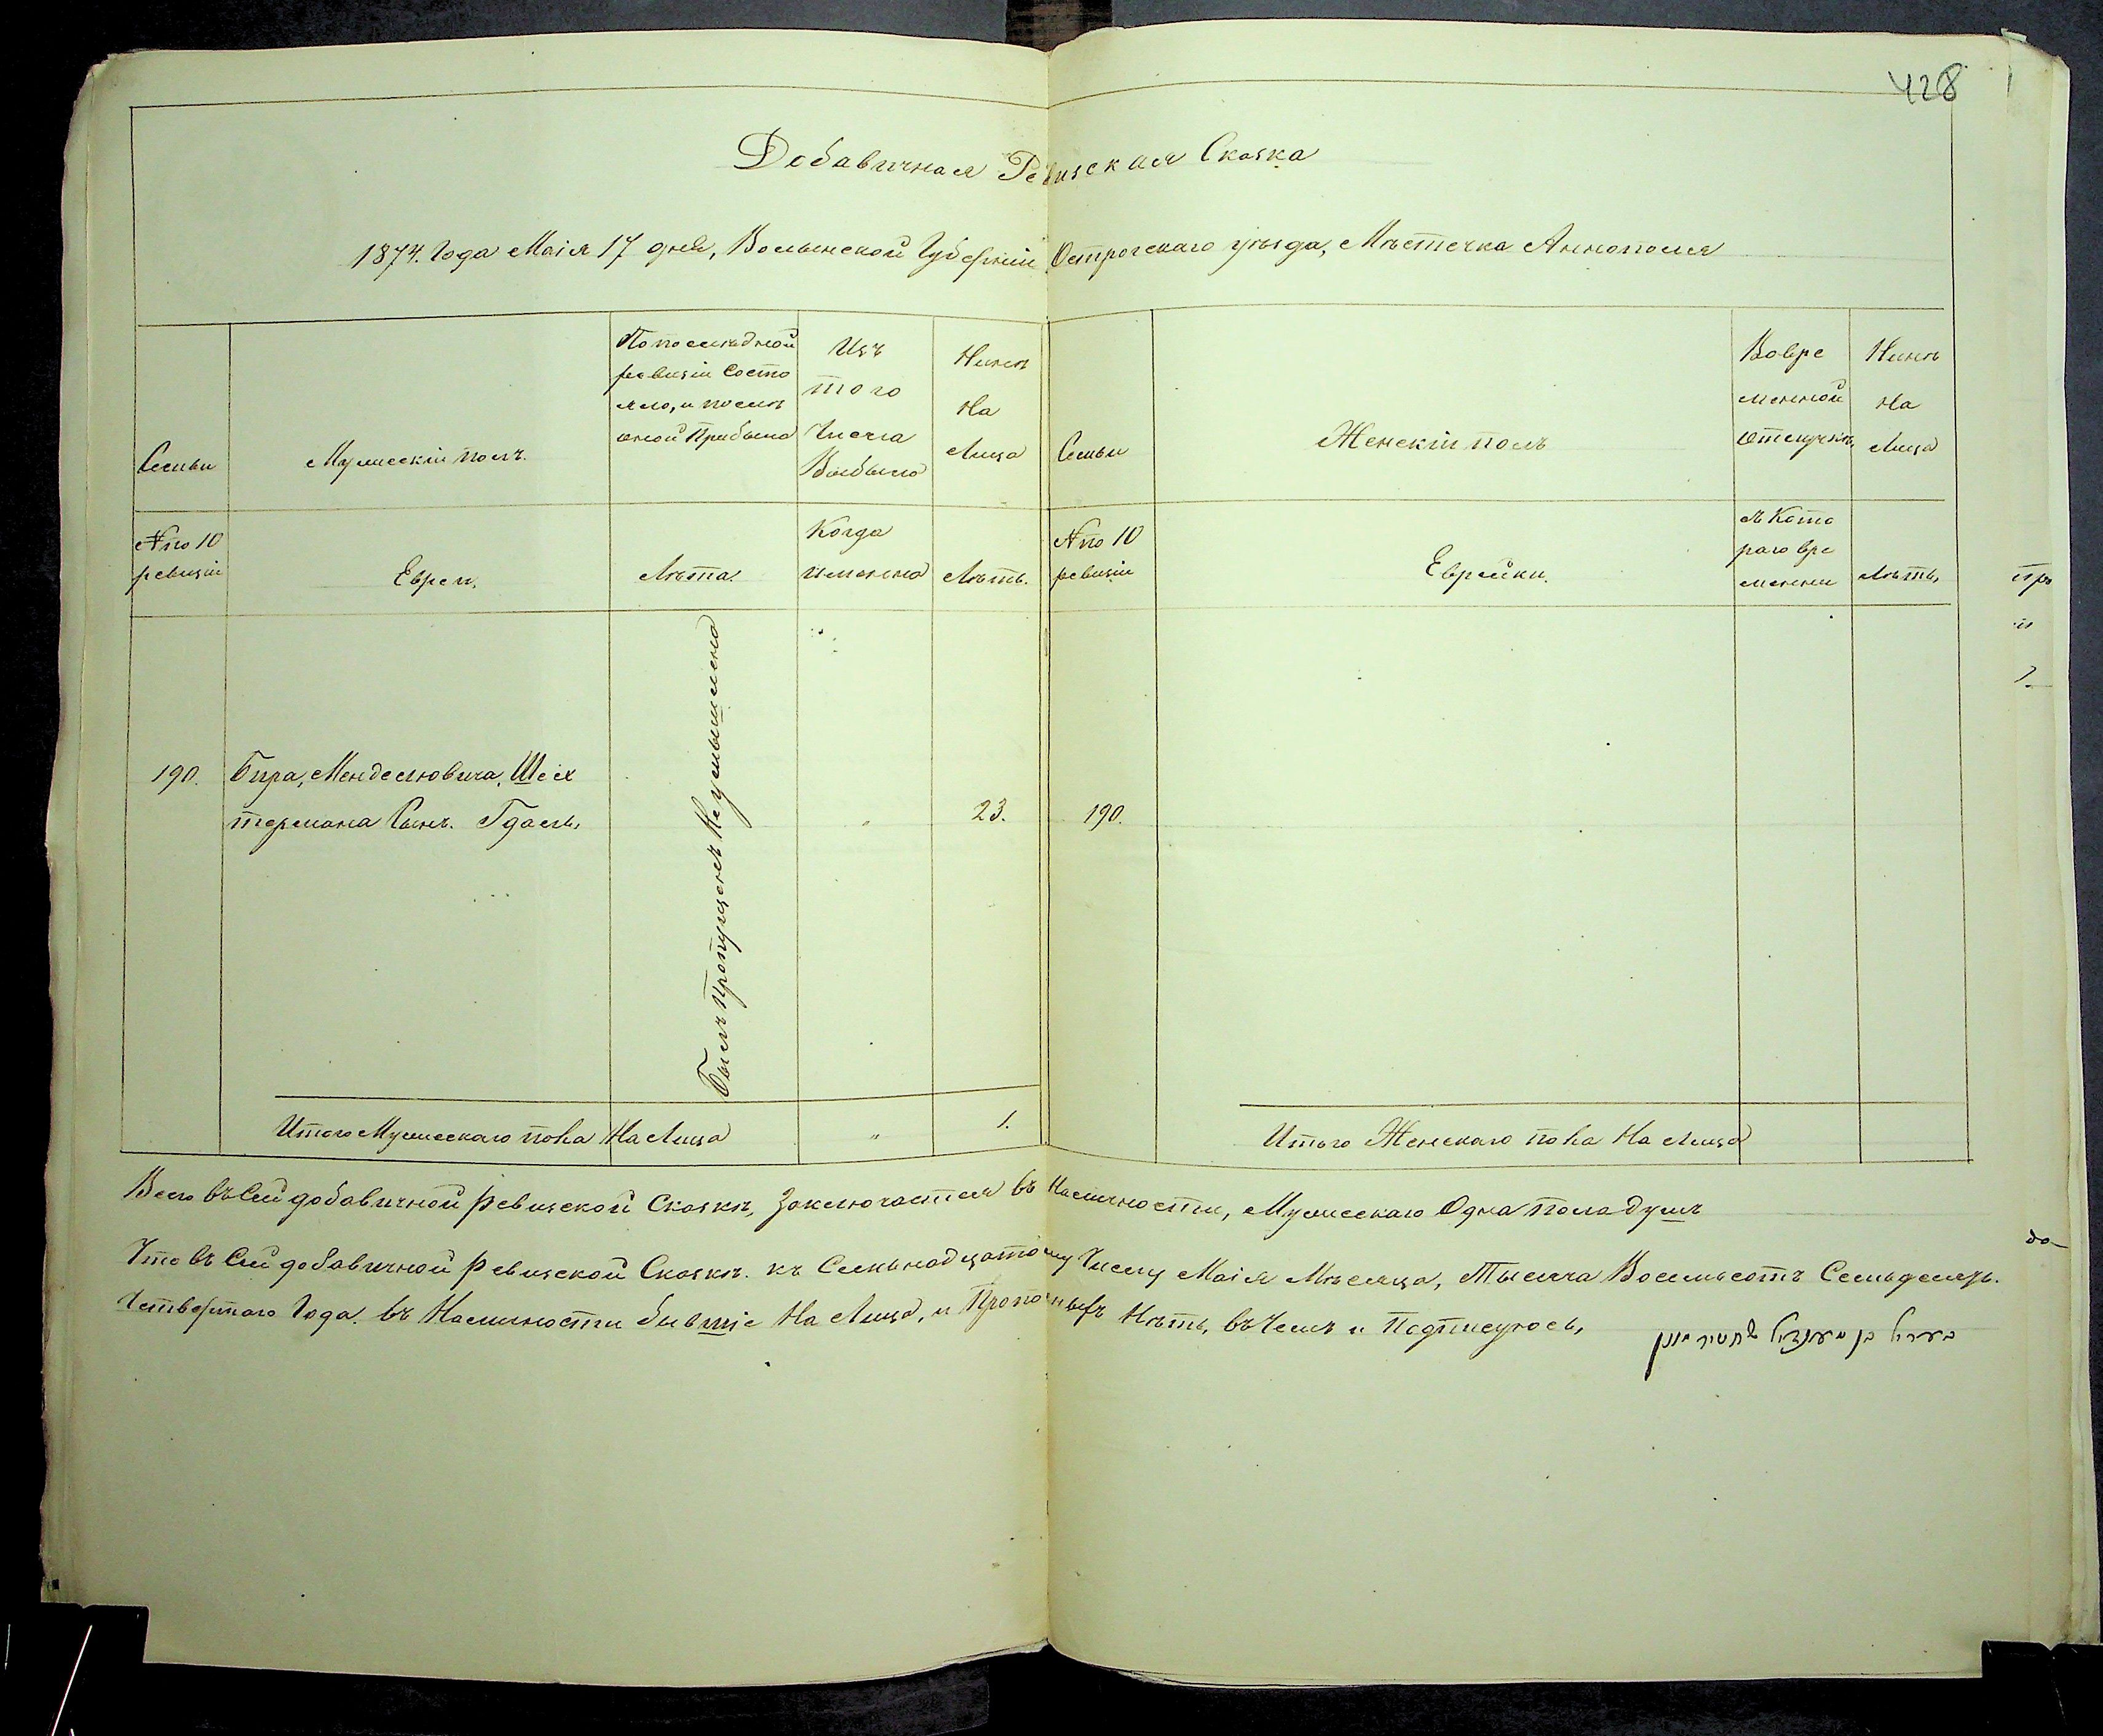 428
Добавичная Ревизская Сказка
1874. Года Маія 17 дня, Волынской Губерніи Острогскаго уѣзда, Мѣстечка Аннополя
Семьи
Мужескій полъ.
По послѣдной
ревизіи Состо
яло, и послѣ
оной Прибыло
Изъ
того
Числа
Выбыло
Нынѣ
На
Лицо
Семьи
Женскій полъ
Вовре
менной
Отлучкѣ
Нынѣ
На
Лицо
№ по 10
ревизіи
Евреи.
Лѣта.
Когда
именно
Лѣтъ.
№ по 10
ревизіи
Еврейки.
съ Кото
раго вре
мени
Лѣтъ,
190.
Бира, Мендельовича, Шех
термана Сынъ. Гдаль,
Былъ пропущенъ Неумышлено
23.
190.
Итого Мужескаго пола На Лицо
"
1.
Итого Женскаго пола На Лицо
Всего въ Сей добавичной ревизской Сказкѣ, Заключается въ Наличности, Мужескаго Одна пола душъ
Что въ Сей добавичной ревизской Сказкѣ. къ Семьнадцатому Числу Маія Мѣсяца, Тысяча Восемьсотъ Семьдесятъ.
Четвертаго Года. въ Наличности бывшіе На Лицо, и Прописныхъ Нѣтъ, въ Чемъ и Подписуюсь,